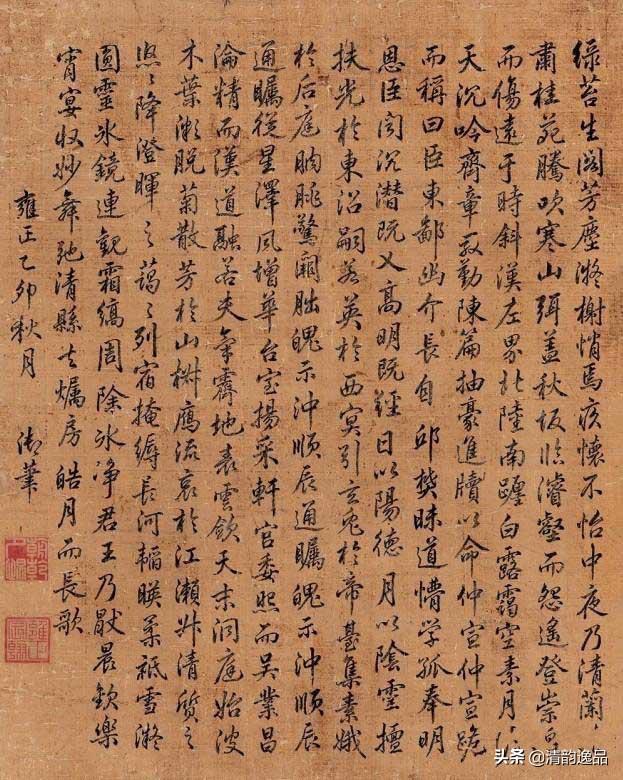 綠苔生閣芳塵凝榭悄焉疚懷不怡中夜乃清蘭
肅桂苑騰吹寒山弭蓋秋坂臨濬壑而怨遙登崇
而傷遠于時斜漢左界北陸南躔白露靄空素月
天沉吟齊章殷勤陳篇抽豪進牘以命仲宣仲宣跪
而稱曰臣東鄙幽介長自邱樊昧道懵学孤奉明
恩臣聞沉潛既义高明既經日以陽德月以陰靈擅
扶光於東沼嗣若英於西冥引玄兔於帝臺集素娥
於后庭朒朓驚闕朏魄示沖順辰通矚魄示沖順辰
通矚從星澤風增華台室揚采軒宮委照而吳業昌
淪精而漢道融若夫氣霽地表雲斂天末洞庭始波
木葉漸脫菊散芳於山樹雁流哀於江瀨升清質之
悠々降澄暉之藹々列宿掩縟長河韜暎柔祇雪凝
圓靈水鏡連觀霜縞周除冰净君王乃厭晨歡樂
宵宴收妙舞弛清縣去燭房皓月而長歌
雍正乙卯秋月 御筆
头条 @清韵逸品